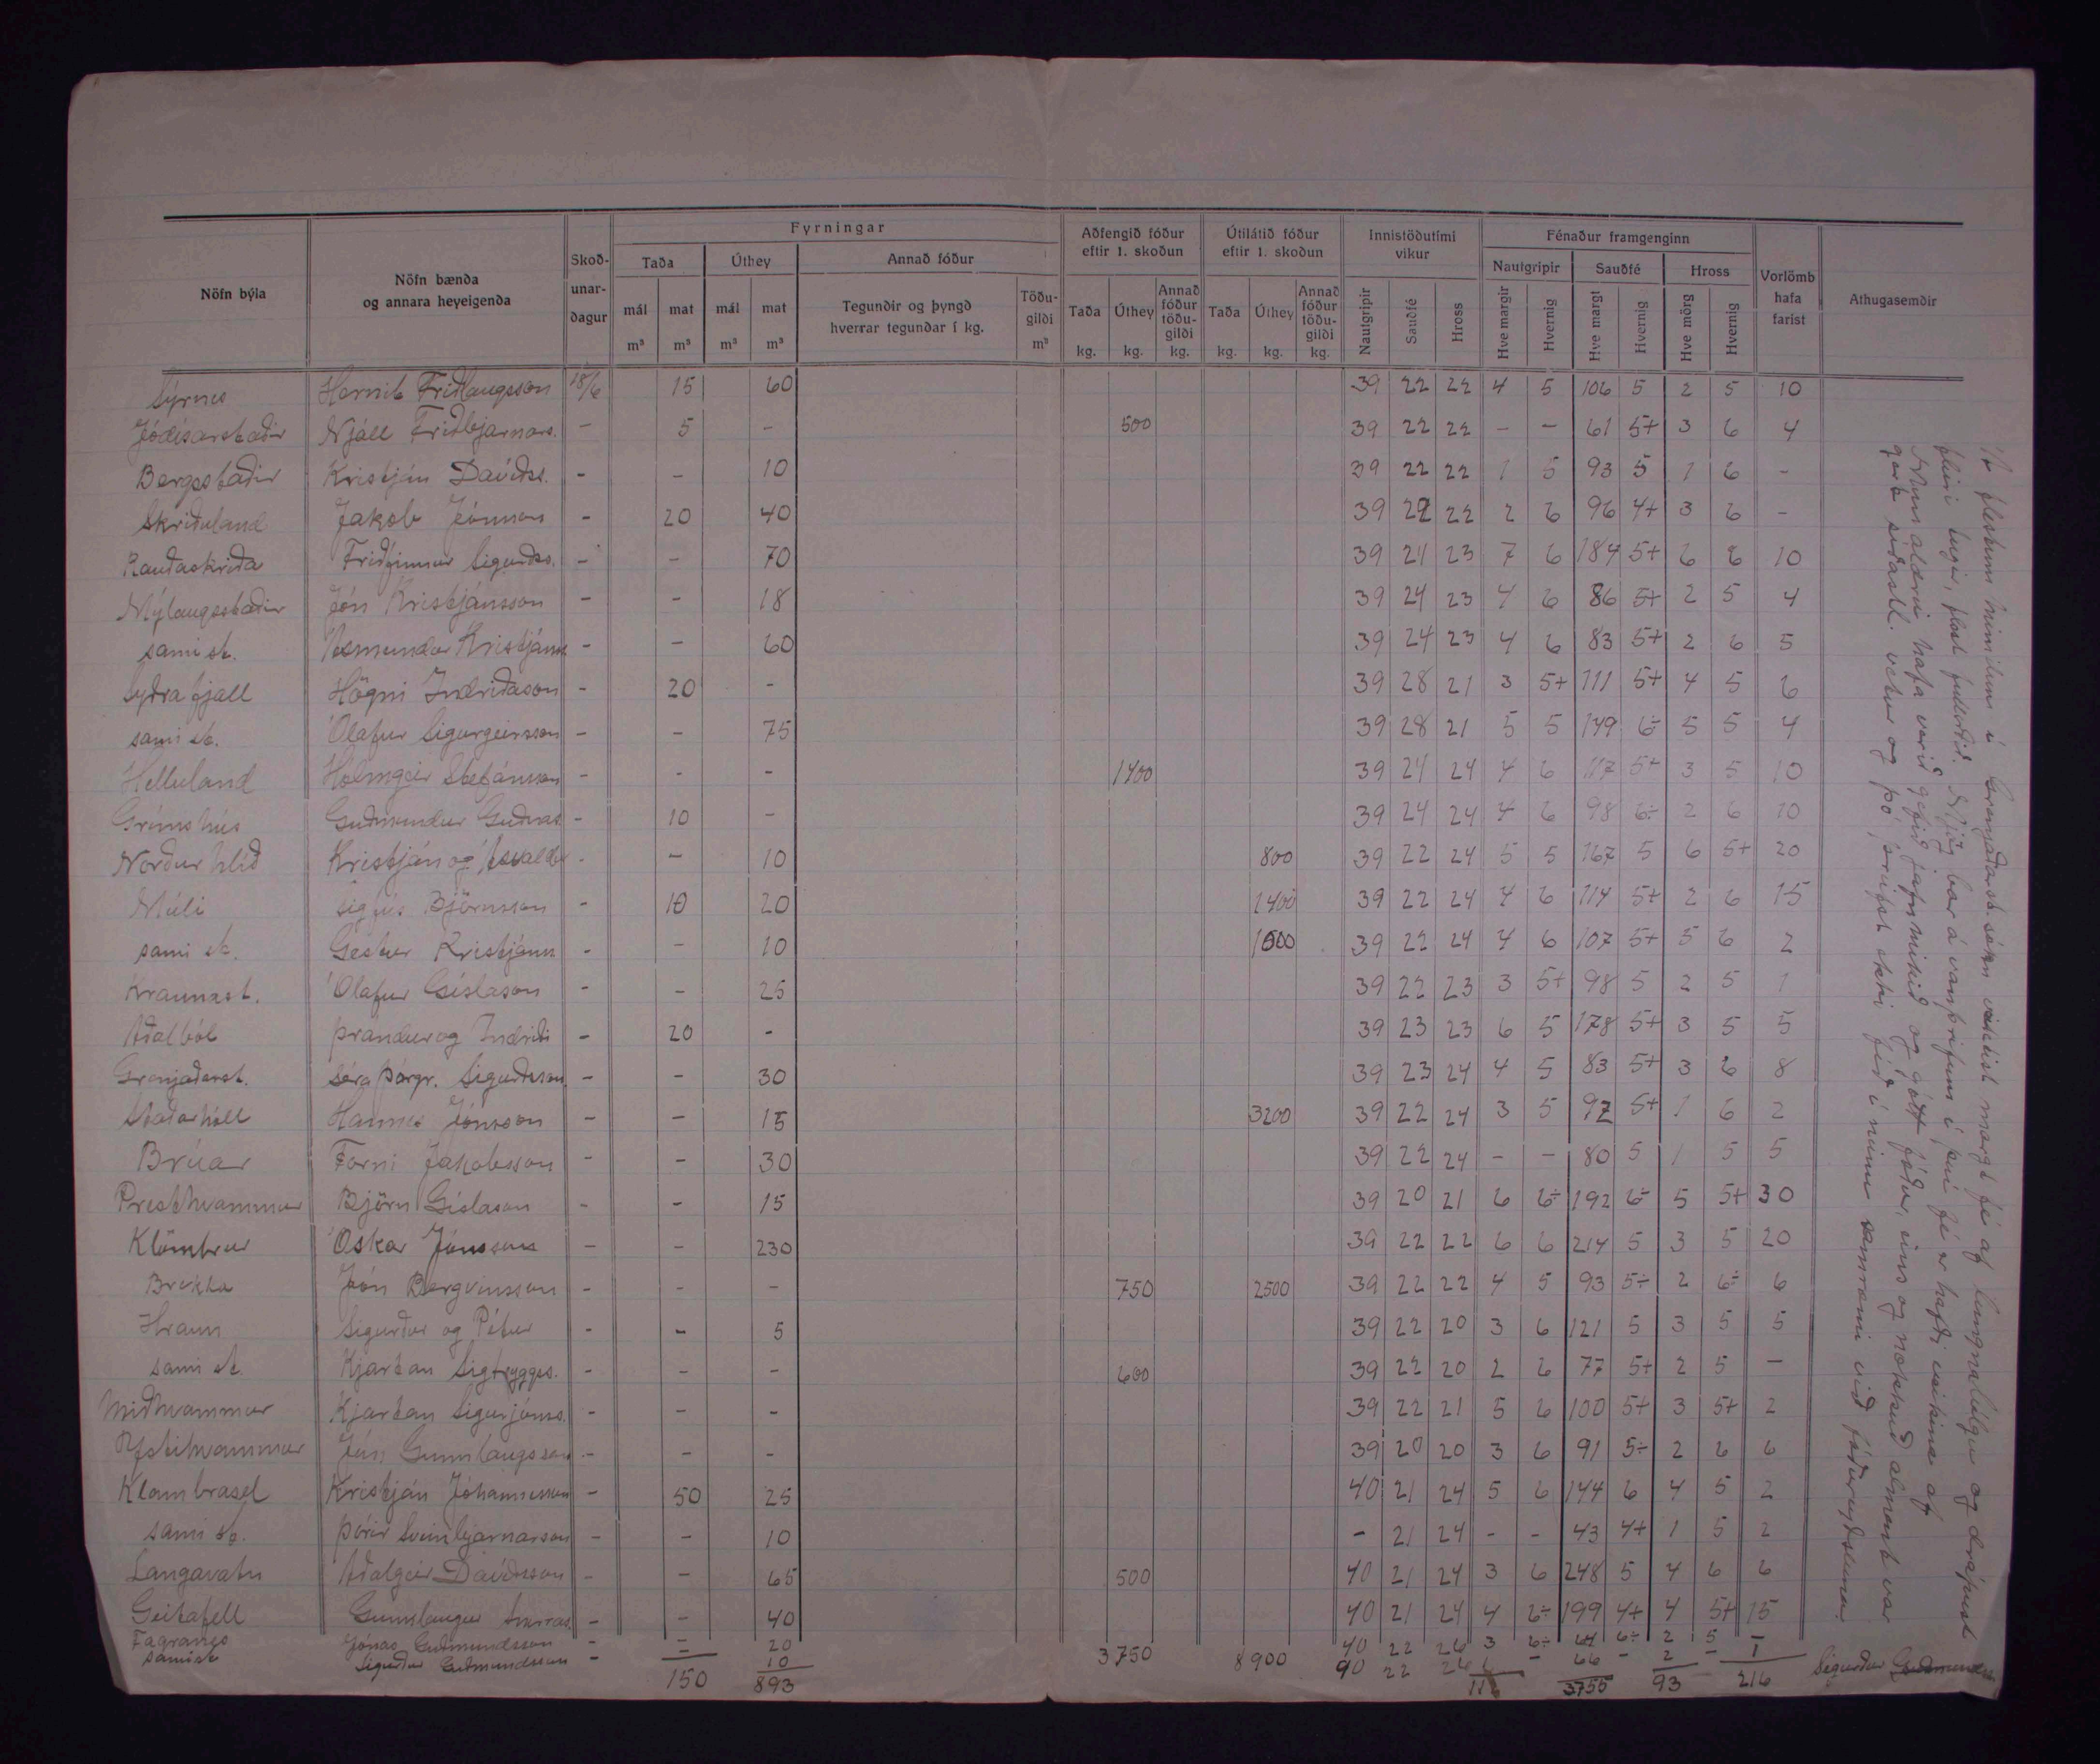 Fyrningar
Aðfengið fóður eftir 1. skoðun
Útilátið fóður eftir 1. skoðun
Innistöðutími vikur
Fénaður framgenginn
Nöfn býla
Nöfn bænda og annara heyeigenda
Skoðunardagur
Taða
Úthey
Annað fóður
Nautgripir
Sauðfé
Hross
Vorlömb hafa farist
Athugasemdir
mál m³
mat m³
mál m³
mat m³
Tegundir og þyngd hverrar tegundar í kg.
Töðugildi m³
Taða kg.
Úthey kg.
Annað fóður töðugildi kg.
Taða kg.
Úthey kg.
Annað fóður töðugildi kg.
Nautgripir
Sauðfé
Hross
Hve margir
Hvernig
Hve margt
Hvernig
Hve mörg
Hvernig
Sýrnes Hernit Friðlaugsson 18/6 15 60 39 22 22 4 5 106 5 2 5 10
Jódísarstaðir Njáll Friðbjarnars. - 5 - 500 39 22 22 - - 61 5+ 3 6 4
Bergsstaðir Kristján Davíðss. - - 10 39 22 22 1 5 93 5 1 6 -
Skriðuland Jakob Jónsson - 20 40 39 22 22 2 6 96 4+ 3 6 -
Rauðaskriða Friðfinnur Sigurðss. - - 70 39 24 23 7 6 184 5+ 6 6 10
Mýlaugsstaðir Jón Kristjánsson - - 18 39 24 23 4 6 86 5+ 2 5 4
sami st. Ásmundur Kristjánss - - 60 39 24 23 4 6 83 5+ 2 6 5
Syðrafjall Högni Indriðason - 20 - 39 28 21 3 5+ 111 5+ 4 5 6
sami st. Ólafur Sigurgeirsson - - 75 39 28 21 5 5 149 6÷ 5 5 4
Helluland Hólmgeir Stefánsson - - - 1400 39 24 24 4 6 117 5+ 3 5 10
Grímshús Guðmundur Guðnas - 10 - 39 24 24 4 6 98 6÷ 2 6 10
Norðurhlíð Kristján og Ásvaldur - - 10 800 39 22 24 5 5 167 5 6 5+ 20
Múli Sigfús Björnsson - 10 20 2400 39 22 24 4 6 114 5+ 2 6 15
sami st. Gestur Kristjánss - - 10 39 22 24 4 6 107 5+ 5 6 2
Kraunast. Ólafur Gíslason - - 25 39 22 23 3 5+ 98 5 2 5 1
Aðalból Þrándur og Indriði - 20 - 39 23 23 6 5 178 5+ 3 5 5
Grenjaðarst. séra Þorgr. Sigurðsson - - 30 39 23 24 4 5 83 5+ 3 6 8
Staðarhóll Hannes Jónsson - - 15 3200 39 22 24 3 5 92 5+ 1 6 2
Brúar Forni Jakobsson - - 30 39 22 24 - - 80 5 1 5 5
Presthvammur Björn Gíslason - - 15 39 20 21 6 6÷ 192 6÷ 5 5+ 30
Klömbrur Óskar Jónsson - - 230 39 22 22 6 6 214 5 3 5 20
Brekka Jón Bergvinsson - - - 750 2500 39 22 22 4 5 93 5÷ 2 6÷ 6
Hraun Sigurður og Pétur - - 5 39 22 20 3 6 121 5 3 5 5
sami st. Kjartan Sigtryggss. - - - 600 39 22 20 2 6 77 5+ 2 5 -
Miðhvammur Kjartan Sigurjónss. - - - 39 22 21 5 6 100 5+ 3 5+ 2
Ystihvammur Jón Gunnlaugsson - - - 39 20 20 3 6 91 5÷ 2 6 6
Klambrasel Kristján Jóhannesson - 50 25 40 21 24 5 6 144 6 4 5 2
sami st. Þórir Sveinbjarnarson - - 10 - 21 24 - - 43 4+ 1 5 2
Langavatn Aðalgeir Davíðsson - - 65 500 40 21 24 3 6 248 5 4 6 6
Geitafell Gunnlaugur Snorras. - - 40 40 21 24 4 6÷ 199 4+ 4 5+ 15
Fagranes Jónas Guðmundsson - - 20 40 22 26 3 6÷ 64 6÷ 2 5 -
sami st Sigurður Guðmundsson - - 10 40 22 26 1 - 66 - 2 - 1
150 893 3750 8900 3755 93 216
Á flestum heimilum í Grenjaðarst. sókn veiktist margt fé af lungnabólgu og drápust
fleiri ungir, flest fullorðið. Mjög bar á vanþrifum í því fé er hafði veikina af
Mun aldrei hafa verið gefið jafn mikið og gott fóður, eins og nokkuð alment var
gert síðastl. vetur og þó þreifst ekki féð í neinu samræmi við fóðureyðsluna.
Sigurður Guðmundss.